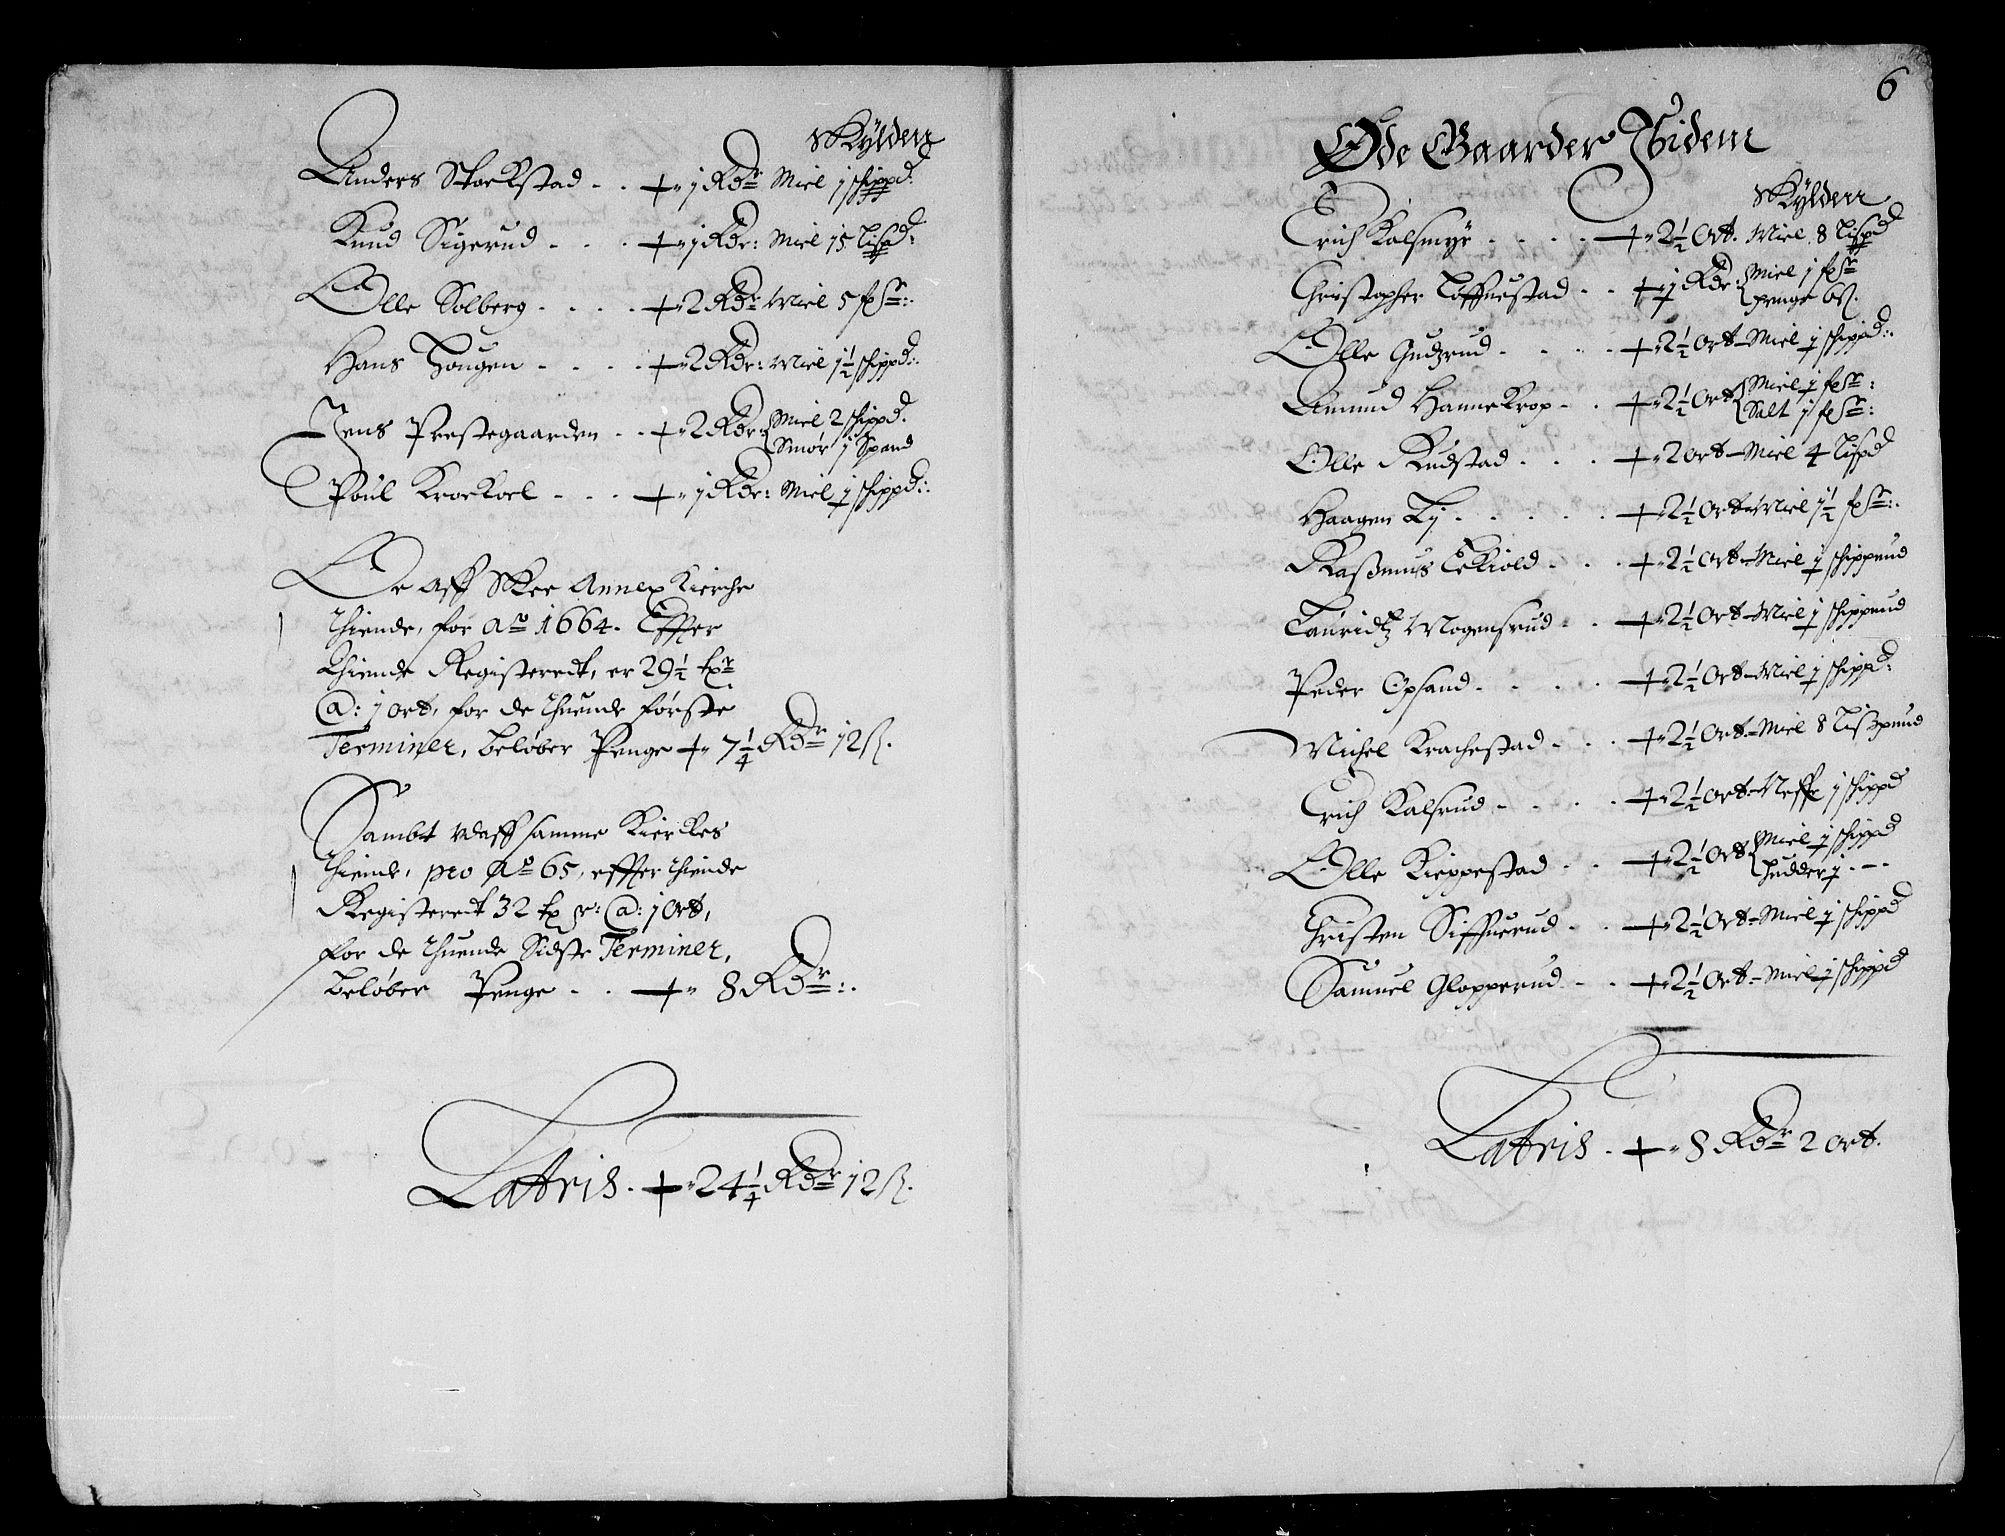 Skylden
Anders Stockstad - - + 1 Rdr Miel 1 schippd:
Knud Sigerud - - - + 1 Rdr: Miel 15 Lispd:
Olle Solberg - - - + 2 Rdr Miel 5 fdr:
Hans Hougen - - - + 2 Rdr: Miel 1½ schippd:
Jens Prestegaarden - - + 2 Rdr: Miel 2 schippd.
Smør 1 Spand
Poul Krockoel - - - + 1 Rdr: Miel 1 schippd:
Er aff Skee Annex Kierche
thiende, for Ao 1664. Effter
thiende Registeret, er 29½ txr
@: 1 ort, for de thuende første
Terminer, beløber Penge + 7¼ Rdr 12 ß.
Sambt udaff samme Kierckes
thiende, pro Ao 65, effter thiende
Registeret 32 tx r: @: 1 Ort,
for de thuende Sidste Terminer,
beløber Penge - - + 8 Rdr:
Latris - + 24¼ Rdr 12 ß.
6
Øde Gaarder Ibidem
Skylden
Erich Kalsmyr - - - + 2½ Ort. Miel 8 Lispd
Christopher Løffuestad - - + 1 Rdr: Miel 1 fdr
penge 6 ß.
Olle Gudzrud - - - + 2½ Ort Miel 1 schippd:
Amund Hannekrop - - + 2½ Ort Miel 1 fdr:
Salt 1 fdr:
Olle Rudstad - - - + 2 ort Miel 4 Lispd
Haagen Lj - - - - + 2½ Ort Miel 1½ fdr:
Rasmus Eckiold - - - + 2½ Ort Miel 1 schippund
Lauridtz Mogensrud - - + 2½ Ort Miel 1 schippund
Peder Opsand - - - + 2½ Ort Miel 1 schippd:
Michel Krachestad - - - + 2½ Ort Miel 8 Lispund
Erich Kalsrud - - - + 2½ ort Neffr 1 schippd
Olle Kieppestad - - + 2½ Ort Miel 1 schippd
hudder 1 - -
Christen Siffuerud - - + 2½ Ort Miel 1 schippd
Samuel Glopperud - - + 2½ Ort Miel 1 schippd
Latris - + 8 Rdr 2 ort.